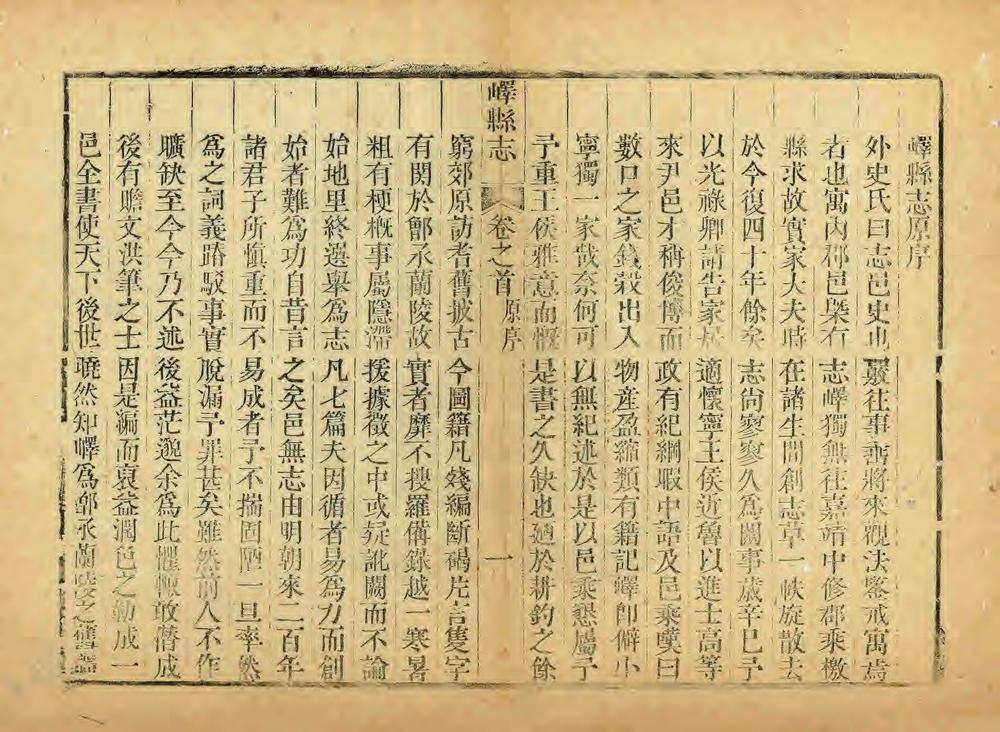 嶧縣志原序
外史氏曰志邑史也覈往事垂將來觀法鑒戒寓焉
者也寓內郡邑槩有志嶧獨無往嘉靖中修郡乘檄
縣求故實家大夫時在諸生間創志草一帙旋散去
於今復四十年餘矣志尙寥寥久爲闕事歲辛巳予
以光祿卿請告家居適懷寧王侯近魯以進士高等
來尹邑才稱俊博而政有紀綱暇中語及邑乘嘆曰
數口之家錢穀出入物産盈縮類有籍記嶧卽僻小
寧獨一家哉奈何可以無紀述於是以邑乘懇屬予
予重王侯雅意而慨是書之久缺也廼於耕釣之餘
嶧縣志 卷之首 原序 一
窮郊原訪耆舊披古今圖籍凡殘編斷碣片言隻字
有關於鄫承蘭陵故實者靡不搜羅備錄越一寒暑
粗有梗槪事屬隱滯援據徵之中或疑訛闕而不論
始地里終選舉爲志凡七篇夫因循者易爲力而創
始者難爲功自昔言之矣邑無志由明朝來二百年
諸君子所愼重而不易成者予不揣固陋一旦率然
爲之詞義踳駁事實脫漏予罪甚矣雖然前人不作
曠缺至今今乃不述後益茫邈余爲此懼輙敢僭成
後有贍文洪筆之士因是編而裒益潤色之勒成一
邑全書使天下後世曉然知嶧爲鄫承蘭陵之舊